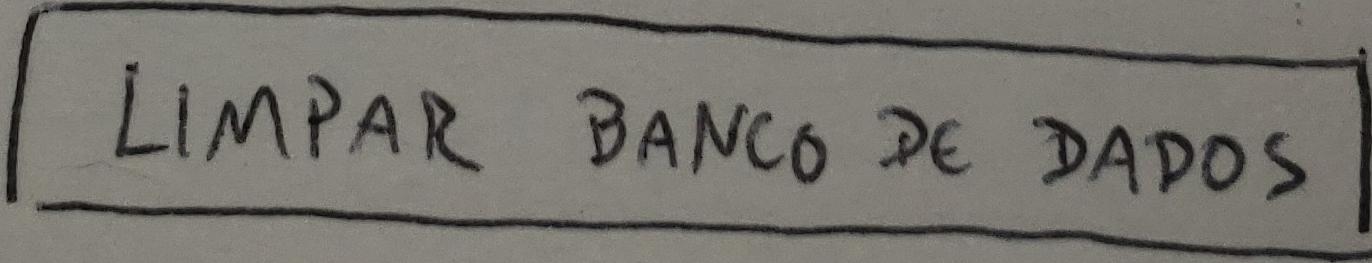 LIMPAR BANCO DE DADOS